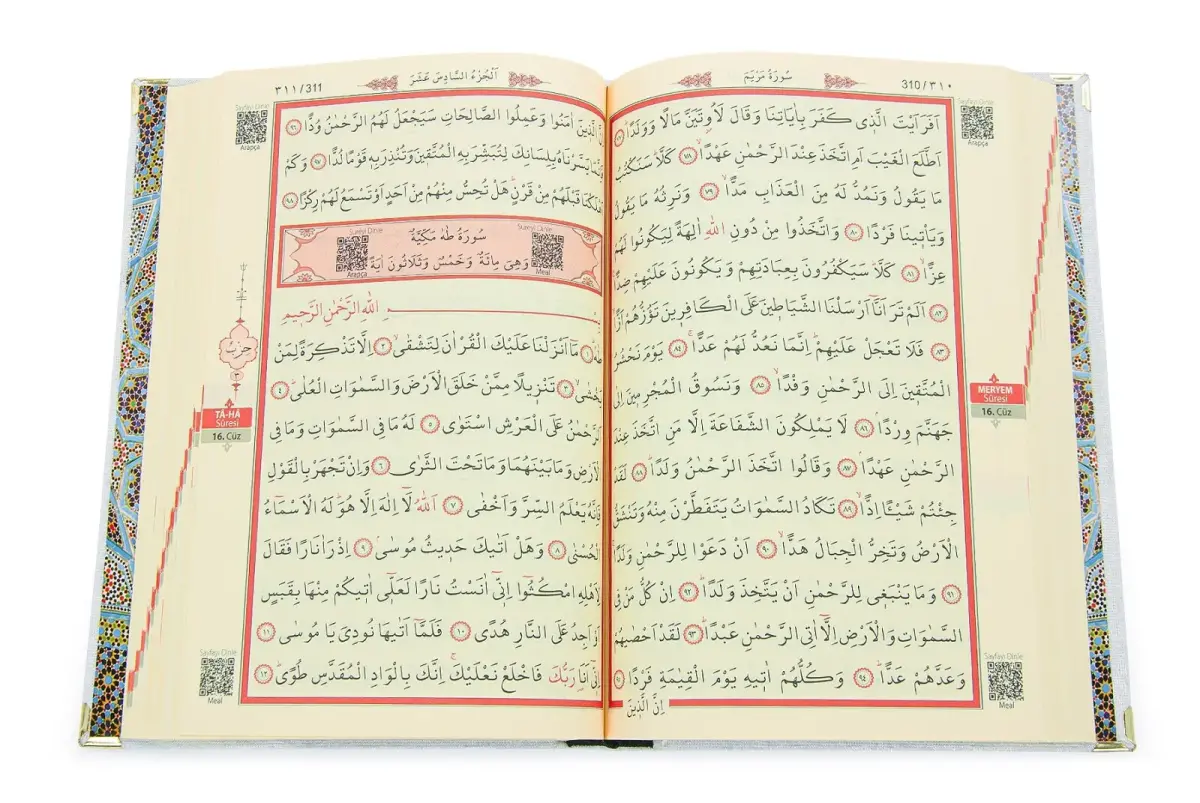 سُورَةُ مَرْيَمَ
310/٣١٠
Sayfayı Dinle
Arapça
اَفَرَاَيْتَ الَّذٖى كَفَرَ بِاٰيَاتِنَا وَقَالَ لَاُوتَيَنَّ مَالًا وَوَلَدًاؕ ﴿٧٧﴾
اَطَّلَعَ الْغَيْبَ اَمِ اتَّخَذَ عِنْدَ الرَّحْمٰنِ عَهْدًاۙ ﴿٧٨﴾ كَلَّاؕ سَنَكْتُبُ
مَا يَقُولُ وَنَمُدُّ لَهُ مِنَ الْعَذَابِ مَدًّاۙ ﴿٧٩﴾ وَنَرِثُهُ مَا يَقُولُ
وَيَاْتٖينَا فَرْدًا ﴿٨٠﴾ وَاتَّخَذُوا مِنْ دُونِ اللّٰهِ اٰلِهَةً لِيَكُونُوا لَهُمْ
عِزًّاۙ ﴿٨١﴾ كَلَّاؕ سَيَكْفُرُونَ بِعِبَادَتِهِمْ وَيَكُونُونَ عَلَيْهِمْ ضِدًّا
﴿٨٢﴾ اَلَمْ تَرَ اَنَّٓا اَرْسَلْنَا الشَّيَاطٖينَ عَلَى الْكَافِرٖينَ تَؤُزُّهُمْ اَزًّا
﴿٨٣﴾ فَلَا تَعْجَلْ عَلَيْهِمْؕ اِنَّمَا نَعُدُّ لَهُمْ عَدًّاۚ ﴿٨٤﴾ يَوْمَ نَحْشُرُ
الْمُتَّقٖينَ اِلَى الرَّحْمٰنِ وَفْدًاۙ ﴿٨٥﴾ وَنَسُوقُ الْمُجْرِمٖينَ اِلٰى
جَهَنَّمَ وِرْدًاۘ ﴿٨٦﴾ لَا يَمْلِكُونَ الشَّفَاعَةَ اِلَّا مَنِ اتَّخَذَ عِنْدَ
الرَّحْمٰنِ عَهْدًاۘ ﴿٨٧﴾ وَقَالُوا اتَّخَذَ الرَّحْمٰنُ وَلَدًاؕ ﴿٨٨﴾ لَقَدْ
جِئْتُمْ شَيْـًٔا اِدًّاۙ ﴿٨٩﴾ تَكَادُ السَّمٰوَاتُ يَتَفَطَّرْنَ مِنْهُ وَتَنْشَقُّ
الْاَرْضُ وَتَخِرُّ الْجِبَالُ هَدًّاۙ ﴿٩٠﴾ اَنْ دَعَوْا لِلرَّحْمٰنِ وَلَدًاۚ
﴿٩١﴾ وَمَا يَنْبَغٖى لِلرَّحْمٰنِ اَنْ يَتَّخِذَ وَلَدًاؕ ﴿٩٢﴾ اِنْ كُلُّ مَنْ فِى
السَّمٰوَاتِ وَالْاَرْضِ اِلَّٓا اٰتِى الرَّحْمٰنِ عَبْدًاؕ ﴿٩٣﴾ لَقَدْ اَحْصٰيهُمْ
وَعَدَّهُمْ عَدًّاؕ ﴿٩٤﴾ وَكُلُّهُمْ اٰتٖيهِ يَوْمَ الْقِيٰمَةِ فَرْدًا ﴿٩٥﴾
اِنَّ الَّذٖينَ
MERYEM
Sûresi
16. Cüz
Sayfayı Dinle
Meal
اَلْجُزْءُ السَّادِسَ عَشَرَ
٣١١/311
Sayfayı Dinle
Arapça
اِنَّ الَّذٖينَ اٰمَنُوا وَعَمِلُوا الصَّالِحَاتِ سَيَجْعَلُ لَهُمُ الرَّحْمٰنُ وُدًّا ﴿٩٦﴾
فَاِنَّمَا يَسَّرْنَاهُ بِلِسَانِكَ لِتُبَشِّرَ بِهِ الْمُتَّقٖينَ وَتُنْذِرَ بِهٖ قَوْمًا لُدًّا ﴿٩٧﴾ وَكَمْ
اَهْلَكْنَا قَبْلَهُمْ مِنْ قَرْنٍؕ هَلْ تُحِسُّ مِنْهُمْ مِنْ اَحَدٍ اَوْ تَسْمَعُ لَهُمْ رِكْزًا ﴿٩٨﴾
سُورَةُ طٰهٰ مَكِّيَّةٌ
وَهِىَ مِائَةٌ وَخَمْسٌ وَثَلَاثُونَ اٰيَةً
Sureyi Dinle
Meal
Sureyi Dinle
Arapça
اللّٰهِ الرَّحْمٰنِ الرَّحٖيمِ
طٰهٰۜ ﴿١﴾ مَٓا اَنْزَلْنَا عَلَيْكَ الْقُرْاٰنَ لِتَشْقٰىۙ ﴿٢﴾ اِلَّا تَذْكِرَةً لِمَنْ
يَخْشٰىۙ ﴿٣﴾ تَنْزٖيلًا مِمَّنْ خَلَقَ الْاَرْضَ وَالسَّمٰوَاتِ الْعُلٰىؕ ﴿٤﴾
اَلرَّحْمٰنُ عَلَى الْعَرْشِ اسْتَوٰى ﴿٥﴾ لَهُ مَا فِى السَّمٰوَاتِ وَمَا فِى
الْاَرْضِ وَمَا بَيْنَهُمَا وَمَا تَحْتَ الثَّرٰى ﴿٦﴾ وَاِنْ تَجْهَرْ بِالْقَوْلِ
فَاِنَّهُ يَعْلَمُ السِّرَّ وَاَخْفٰى ﴿٧﴾ اَللّٰهُ لَٓا اِلٰهَ اِلَّا هُوَؕ لَهُ الْاَسْمَٓاءُ
الْحُسْنٰى ﴿٨﴾ وَهَلْ اَتٰيكَ حَدٖيثُ مُوسٰىۘ ﴿٩﴾ اِذْ رَاٰ نَارًا فَقَالَ
لِاَهْلِهِ امْكُثُٓوا اِنّٖٓى اٰنَسْتُ نَارًا لَعَلّٖٓى اٰتٖيكُمْ مِنْهَا بِقَبَسٍ
اَوْ اَجِدُ عَلَى النَّارِ هُدًى ﴿١٠﴾ فَلَمَّٓا اَتٰيهَا نُودِىَ يَا مُوسٰىؕ ﴿١١﴾
اِنّٖٓى اَنَا۬ رَبُّكَ فَاخْلَعْ نَعْلَيْكَۚ اِنَّكَ بِالْوَادِ الْمُقَدَّسِ طُوًىؕ ﴿١٢﴾
حِزْبُ
TÂ-HÂ
Sûresi
16. Cüz
Sayfayı Dinle
Meal